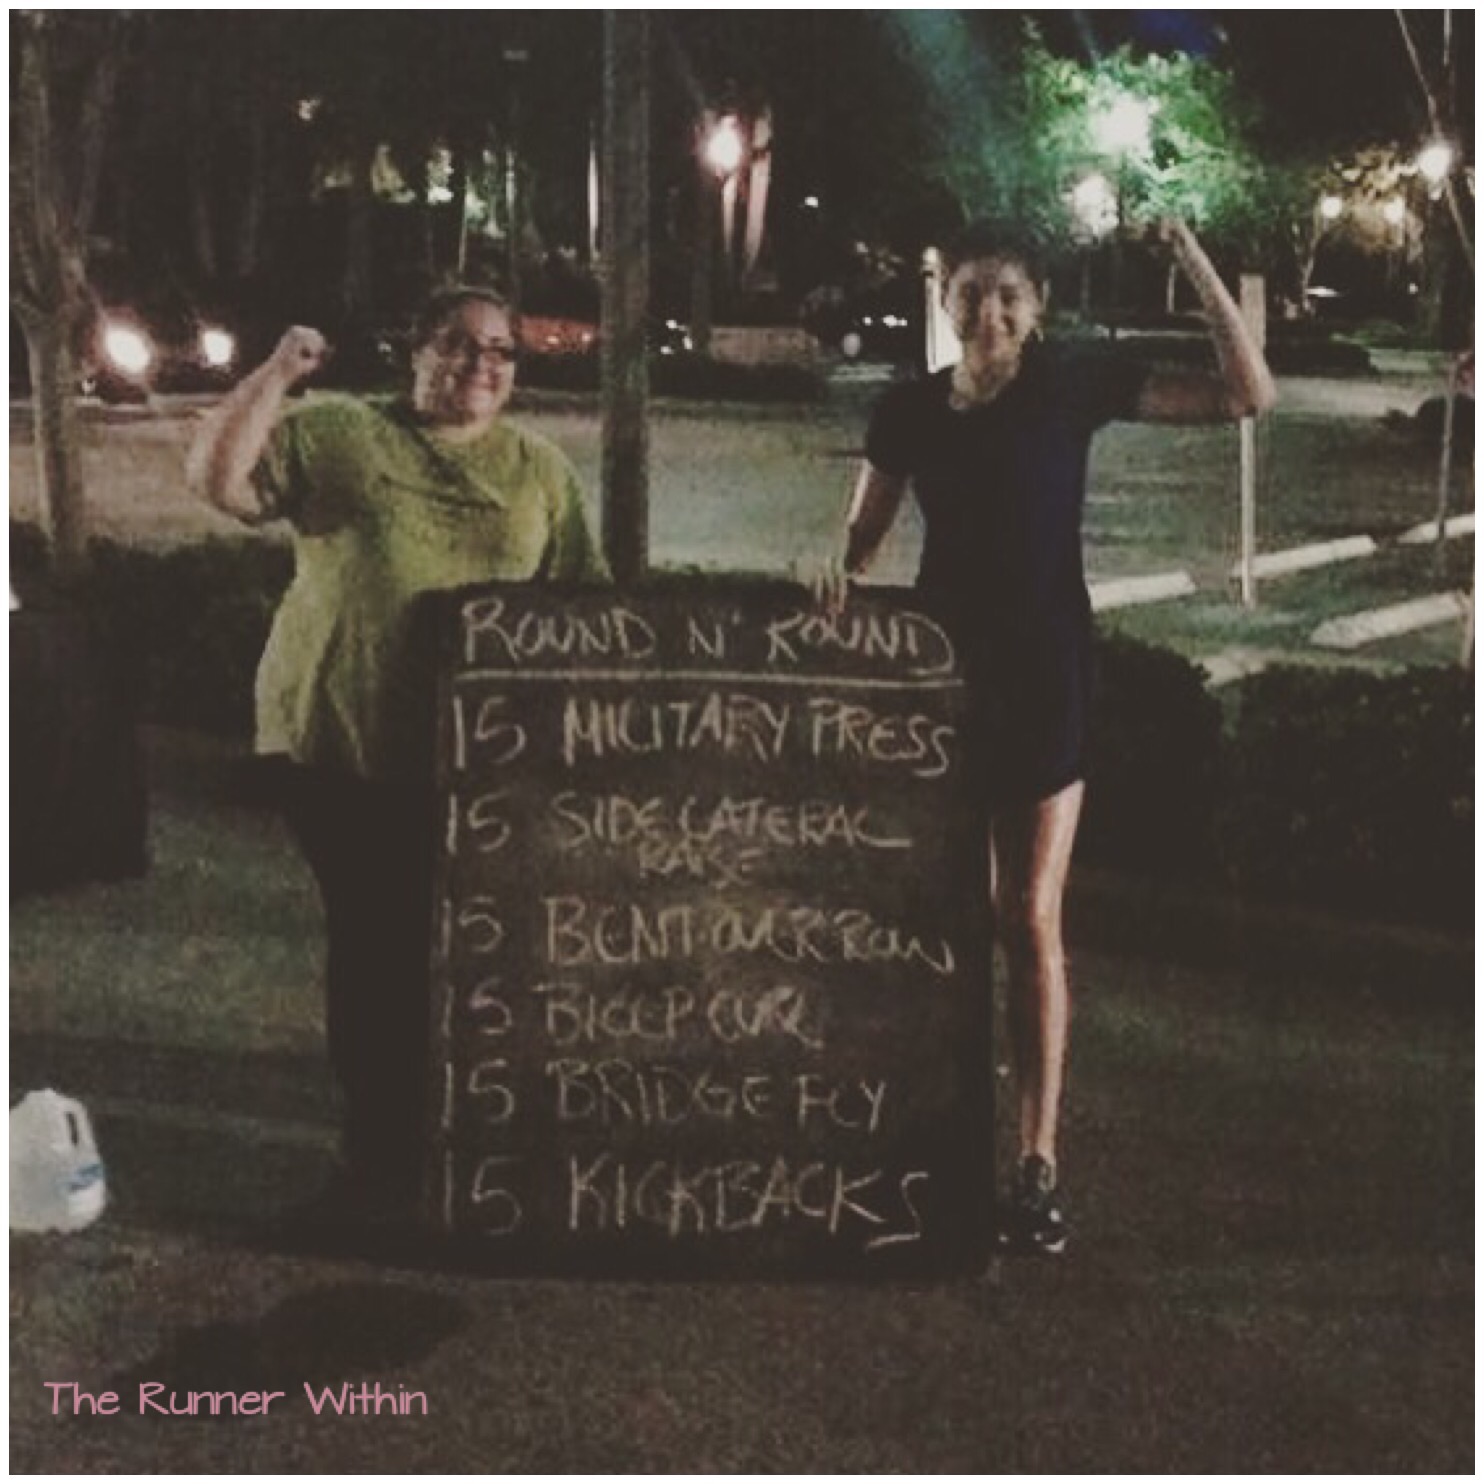 ROUND N' ROUND
15 MILITARY PRESS
15 SIDE LATERAL
RAISE
15 BENT OVER ROW
15 BICEP CURL
15 BRIDGE FLY
15 KICKBACKS
The Runner Within